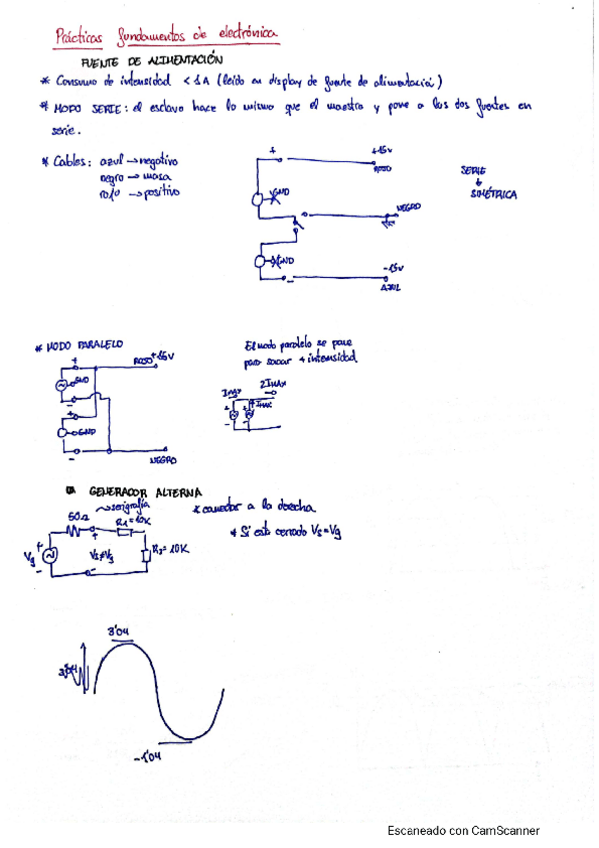 Prácticas fundamentos de electrónica
FUENTE DE ALIMENTACIÓN
* Consumo de intensidad < 1A (leído en display de fuente de alimentación)
* MODO SERIE: el esclavo hace lo mismo que el maestro y pone a las dos fuentes en
serie.
* Cables: azul → negativo
negro → masa
rojo → positivo
+
+15v
ROJO
GND
NEGRO
GND
-
-15v
AZUL
SERIE
↓
SIMÉTRICA
* MODO PARALELO
+
ROJO +15V
GND
-
+
GND
-
NEGRO
El modo paralelo se pone
para sacar + intensidad
Imax
2Imax
Imax
GENERADOR ALTERNA
→ serigrafía
50Ω
R1=10K
Vg
+
-
+
Vs≠Vg
-
R2=10K
* conector a la derecha
* Si está cerrado Vs=Vg
3'04
-1'04
Escaneado con CamScanner